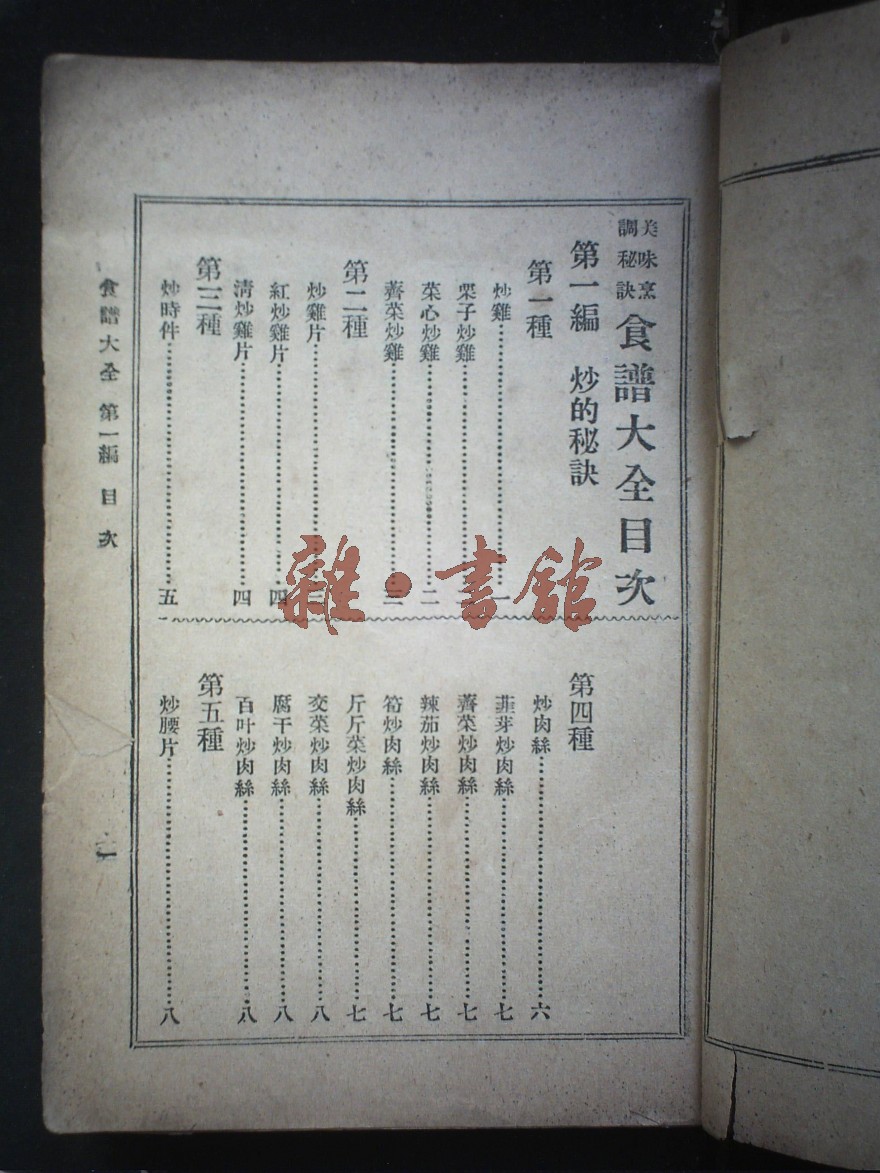 美味烹調秘訣
食譜大全目次
第一編 炒的秘訣
第一種
炒雞……一
栗子炒雞
菜心炒雞……二
薺菜炒雞……三
第二種
炒雞片
紅炒雞片……四
清炒雞片……四
第三種
炒時件……五
第四種
炒肉絲……六
韮芽炒肉絲……七
薺菜炒肉絲……七
辣茄炒肉絲……七
筍炒肉絲……七
斤斤菜炒肉絲……七
交菜炒肉絲……八
腐干炒肉絲……八
百叶炒肉絲……八
第五種
炒腰片……八
食譜大全 第一編 目次
一
雜·書館